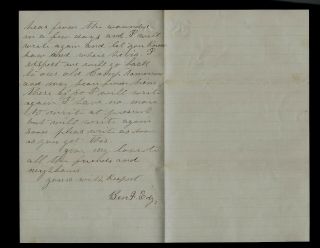 hear from the wounded
in a few days and I will
write again and let you know
how and where he is. I
expect we will go back
to our old Camp tomorrow
and may hear from
there if so I will write
again I have no more
to write at present
but will write again
soon pleas write as soon
as you get this
give my love to
all the friends and
neighbours
yours with Respect
Benj.